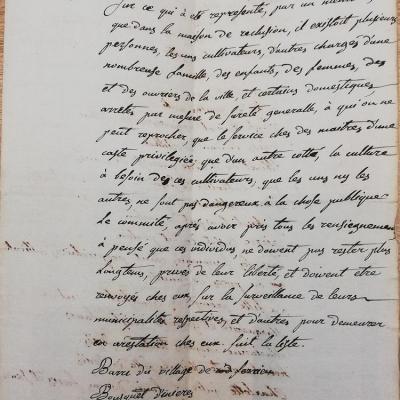 Sur ce qui a été représenté, par un membre
que dans la maison de reclusion, il existoit plusieurs
personnes, les uns cultivateurs, d'autres chargés d'une
nombreuse famille, des enfants, des femmes, des
et des ouvriers de la ville, et certains domestiques
arretés par mesure de sureté generalle, à qui on ne
peut reprocher, que le service chez des maitres d'une
caste privilegiée, que d'un autre cotté, la culture
à besoin des ces cultivateurs, que les uns ny les
autres, ne sont pas dangereux à la chose publique
Le commité, après avoir pris tous les renseignemen
à pensé que ces individus, ne doivent pas rester plus
longtems, privés de leur liberté, et doivent etre
renvoyés chez eux sur la surveillance de leurs
municipalités respectives, et d'autres pour demeurer
en arrestation chez eux. suit la liste.
Barri du village de
Bousquet